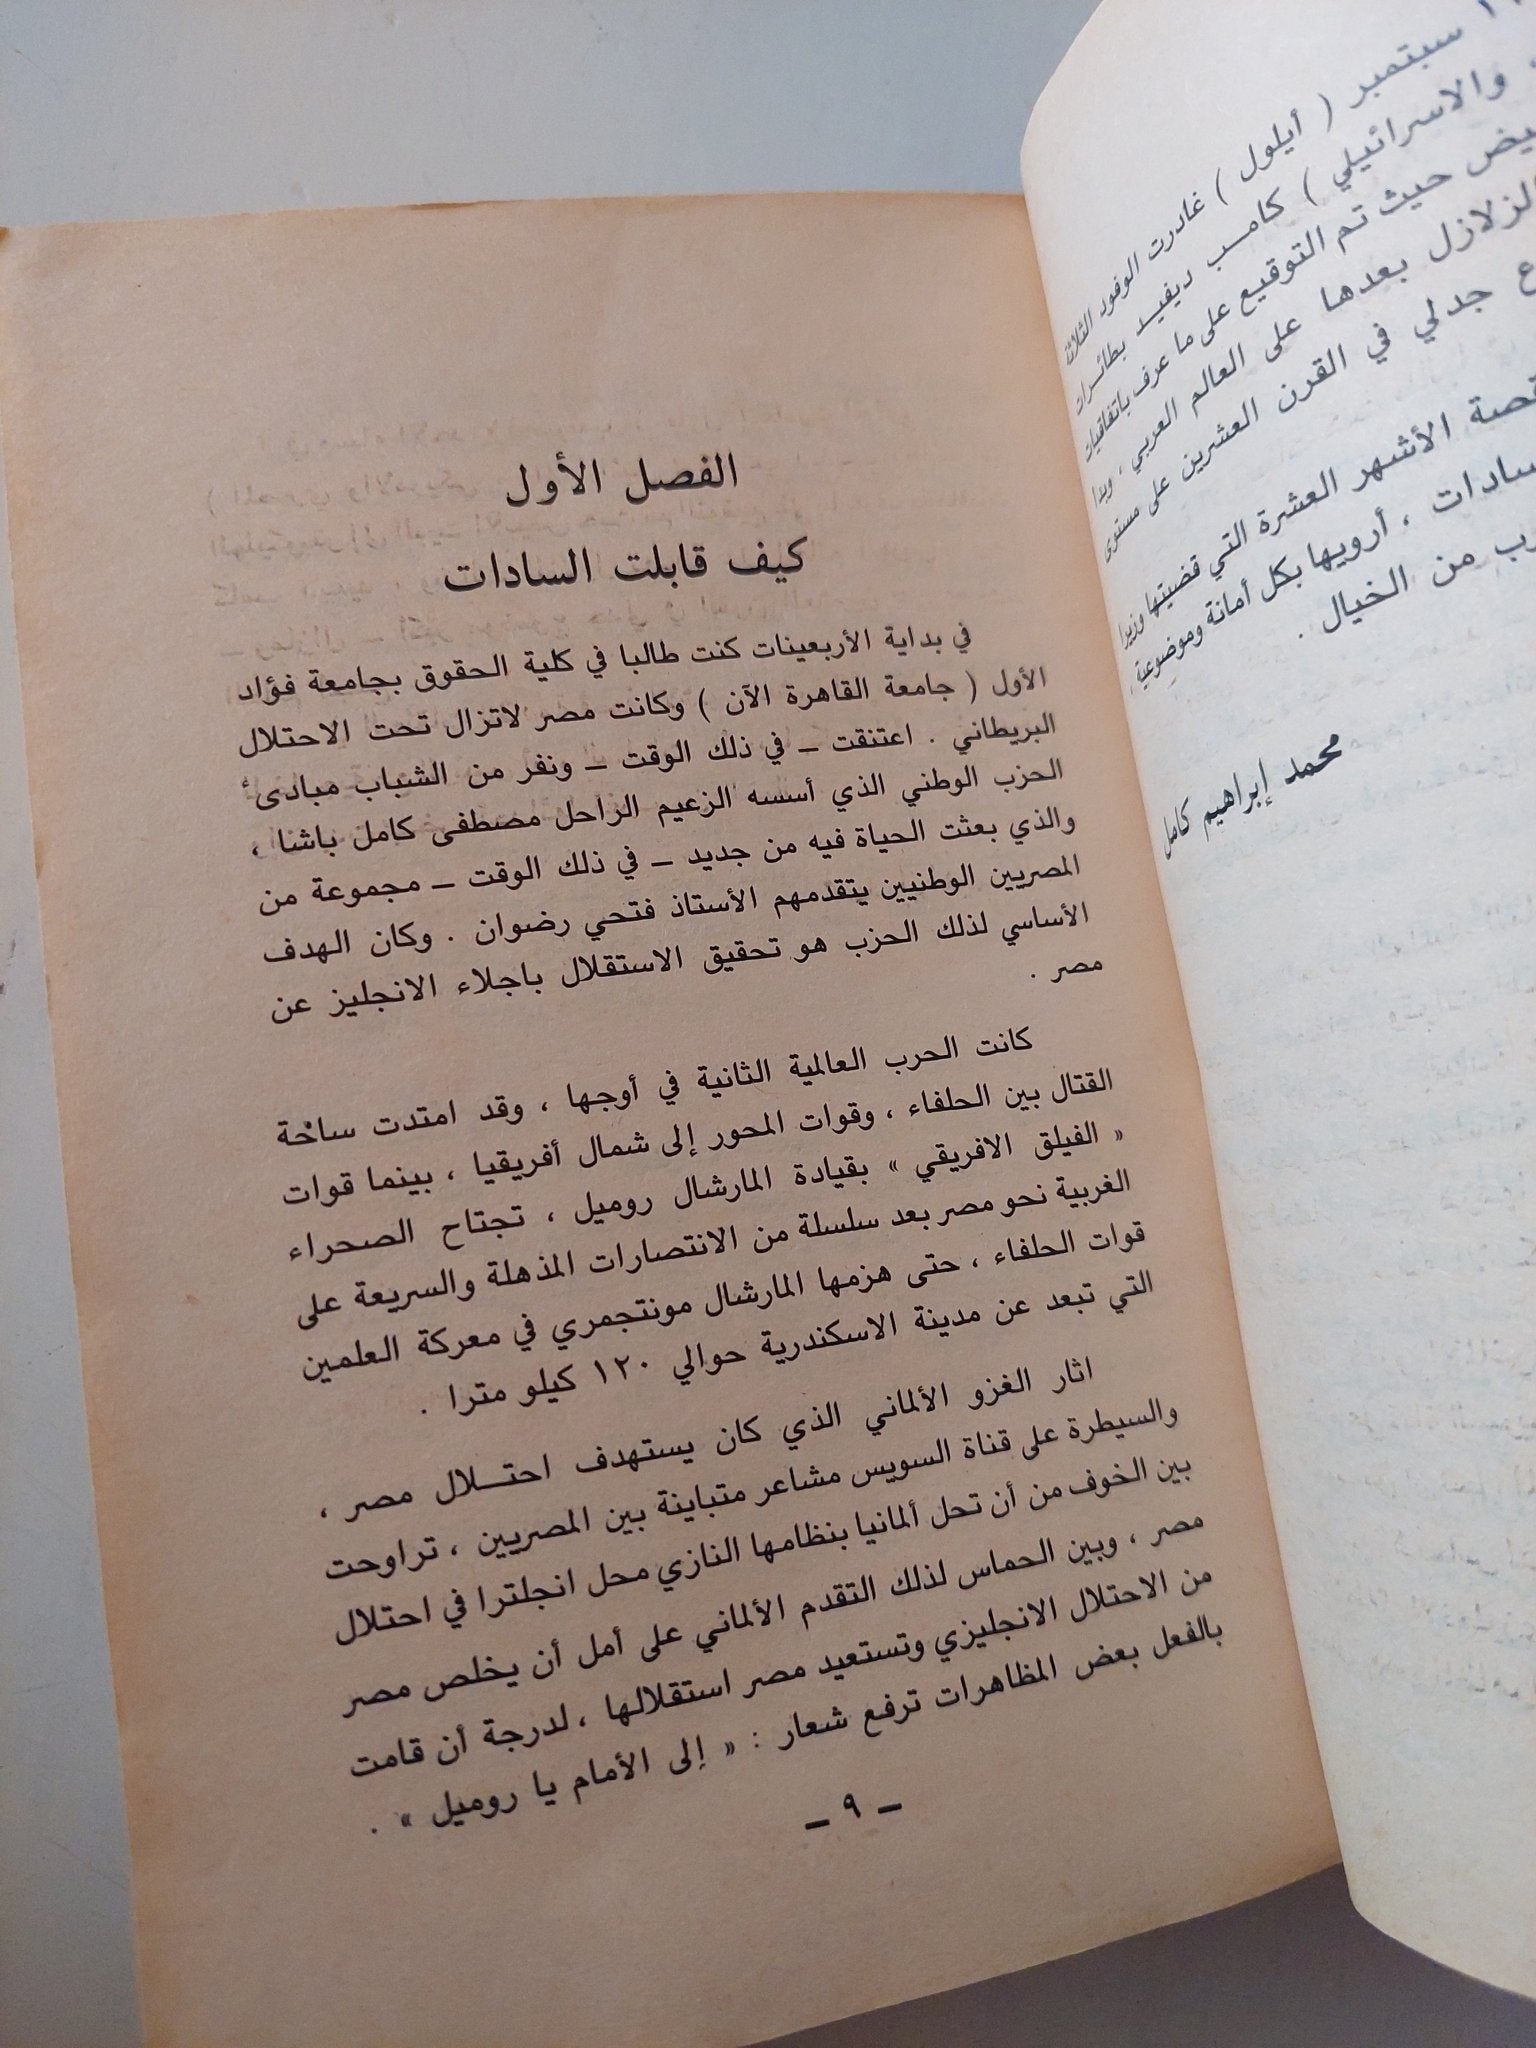 ١٧ سبتمبر ( أيلول ) غادرت الوفود الثلاثة
والاسرائيلي ) كامب ديفيد بطائرات
حيث تم التوقيع على ما عرف باتفاقيات
الزلازل بعدها على العالم العربي ، وبدا
جدلي في القرن العشرين على مستوى
قصة الأشهر العشرة التي قضيتها وزيرا
السادات ، أرويها بكل أمانة وموضوعية ،
من الخيال .
محمد إبراهيم كامل
الفصل الأول
كيف قابلت السادات
في بداية الأربعينات كنت طالبا في كلية الحقوق بجامعة فؤاد
الأول ( جامعة القاهرة الآن ) وكانت مصر لاتزال تحت الاحتلال
البريطاني . اعتنقت ـ في ذلك الوقت ـ ونفر من الشباب مبادىء
الحزب الوطني الذي أسسه الزعيم الراحل مصطفى كامل باشا ،
والذي بعثت الحياة فيه من جديد ـ في ذلك الوقت ـ مجموعة من
المصريين الوطنيين يتقدمهم الأستاذ فتحي رضوان . وكان الهدف
الأساسي لذلك الحزب هو تحقيق الاستقلال باجلاء الانجليز عن
مصر .
كانت الحرب العالمية الثانية في أوجها ، وقد امتدت ساحة
القتال بين الحلفاء ، وقوات المحور إلى شمال أفريقيا ، بينما قوات
« الفيلق الافريقي » بقيادة المارشال روميل ، تجتاح الصحراء
الغربية نحو مصر بعد سلسلة من الانتصارات المذهلة والسريعة على
قوات الحلفاء ، حتى هزمها المارشال مونتجمري في معركة العلمين
التي تبعد عن مدينة الاسكندرية حوالي ١٢٠ كيلو مترا .
اثار الغزو الألماني الذي كان يستهدف احتـلال مصر ،
والسيطرة على قناة السويس مشاعر متباينة بين المصريين ، تراوحت
بين الخوف من أن تحل ألمانيا بنظامها النازي محل انجلترا في احتلال
مصر ، وبين الحماس لذلك التقدم الألماني على أمل أن يخلص مصر
من الاحتلال الانجليزي وتستعيد مصر استقلالها ، لدرجة أن قامت
بالفعل بعض المظاهرات ترفع شعار : « إلى الأمام يا روميل » .
ـ ٩ ـ